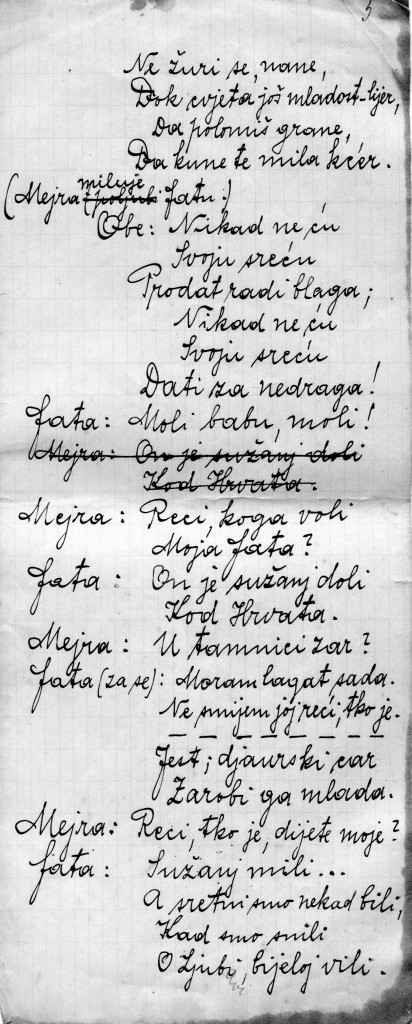 5
Ne žuri se, nane,
Dok cvjeta još mladost-lijer,
Da polomiš grane,
Da kune te mila kćer.
miluje
(Mejra poljubi Fatu:)
Obe: Nikad neću
Svoju sreću
Prodat radi blaga;
Nikad neću
Svoju sreću
Dati za nedraga!
Fata: Moli babu, moli!
Mejra: On je sužanj doli
Kod Hrvata.
Mejra: Reci, koga voli
Moja Fata?
Fata: On je sužanj doli
Kod Hrvata.
Mejra: U tamnici zar?
Fata (za se): Moram lagat, sada.
Ne smijem joj reći, tko je.
— — — — — — — —
Jest; djaurski car
Zarobi ga mlada.
Mejra: Reci, tko je, dijete moje?
Fata: Sužanj mili...
A sretni smo nekad bili,
Kad smo snili
O Ljubi, bijeloj vili.